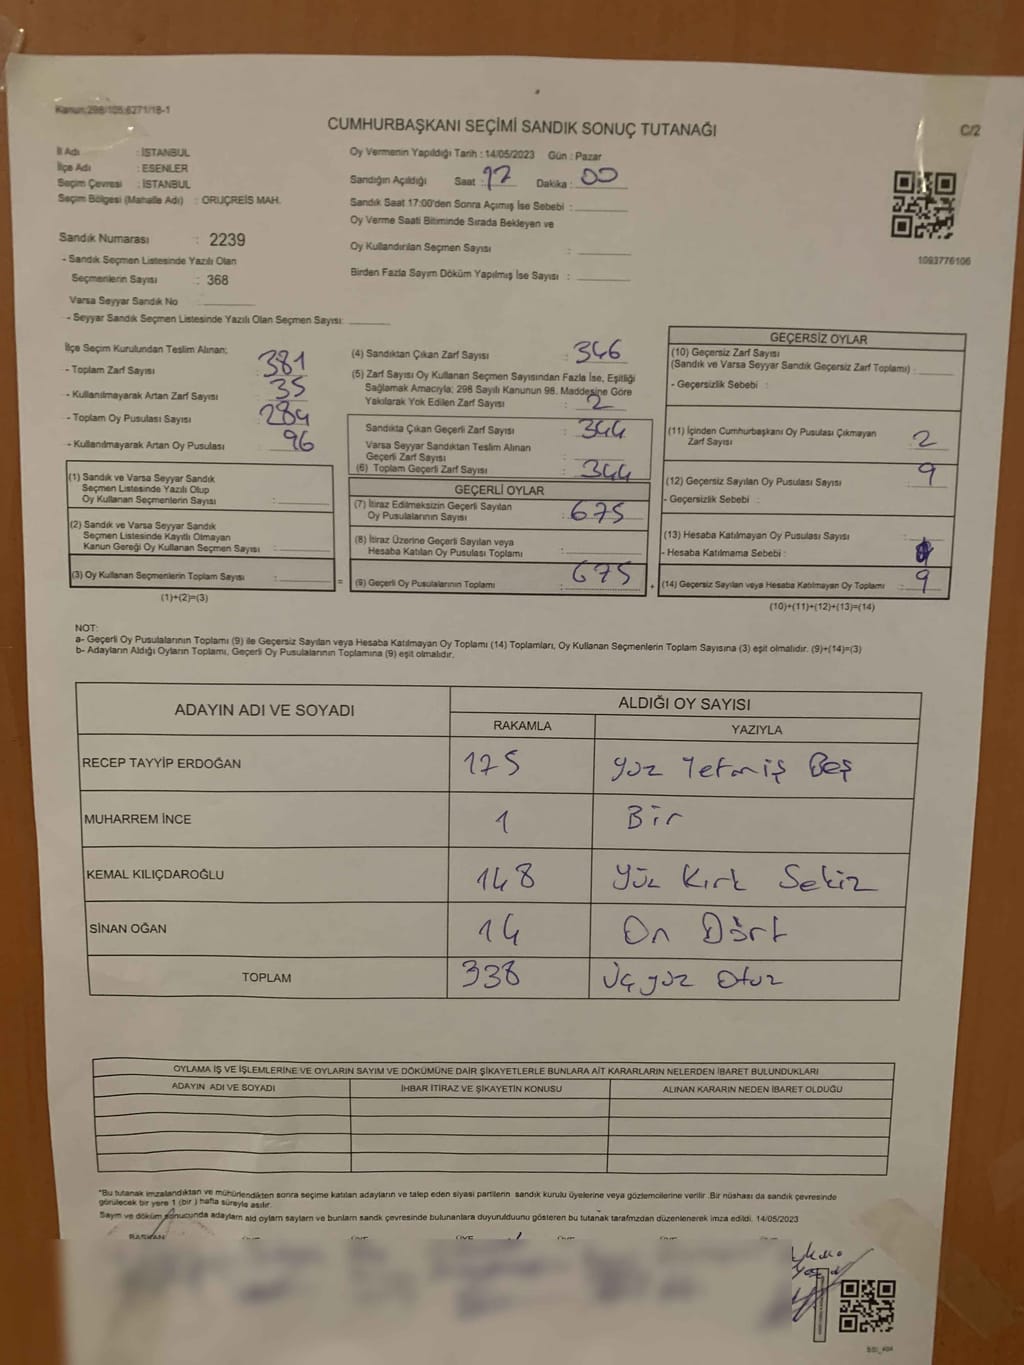 Kanun:298/105;6271/18-1
CUMHURBAŞKANI SEÇİMİ SANDIK SONUÇ TUTANAĞI
C/2
İl Adı : İSTANBUL
İlçe Adı : ESENLER
Seçim Çevresi : İSTANBUL
Seçim Bölgesi (Mahalle Adı) : ORUÇREİS MAH.
Sandık Numarası : 2239
- Sandık Seçmen Listesinde Yazılı Olan
Seçmenlerin Sayısı : 368
Varsa Seyyar Sandık No
- Seyyar Sandık Seçmen Listesinde Yazılı Olan Seçmen Sayısı:
Oy Vermenin Yapıldığı Tarih : 14/05/2023 Gün : Pazar
Sandığın Açıldığı Saat : 17 Dakika : 00
Sandık Saat 17:00'den Sonra Açımış İse Sebebi :
Oy Verme Saati Bitiminde Sırada Bekleyen ve
Oy Kullandırılan Seçmen Sayısı :
Birden Fazla Sayım Döküm Yapılmış İse Sayısı :
1093776106
İlçe Seçim Kurulundan Teslim Alınan;
- Toplam Zarf Sayısı : 381
- Kullanılmayarak Artan Zarf Sayısı : 35
- Toplam Oy Pusulası Sayısı : 284
- Kullanılmayarak Artan Oy Pusulası : 96
(1) Sandık ve Varsa Seyyar Sandık
Seçmen Listesinde Yazılı Olup
Oy Kullanan Seçmenlerin Sayısı :
(2) Sandık ve Varsa Seyyar Sandık
Seçmen Listesinde Kayıtlı Olmayan
Kanun Gereği Oy Kullanan Seçmen Sayısı :
(3) Oy Kullanan Seçmenlerin Toplam Sayısı : =
(1)+(2)=(3)
(4) Sandıktan Çıkan Zarf Sayısı : 346
(5) Zarf Sayısı Oy Kullanan Seçmen Sayısından Fazla İse, Eşitliği
Sağlamak Amacıyla; 298 Sayılı Kanunun 98. Maddesine Göre
Yakılarak Yok Edilen Zarf Sayısı : 2
Sandıkta Çıkan Geçerli Zarf Sayısı : 344
Varsa Seyyar Sandıktan Teslim Alınan
Geçerli Zarf Sayısı :
(6) Toplam Geçerli Zarf Sayısı : 344
GEÇERLİ OYLAR
(7) İtiraz Edilmeksizin Geçerli Sayılan
Oy Pusulalarının Sayısı : 675
(8) İtiraz Üzerine Geçerli Sayılan veya
Hesaba Katılan Oy Pusulası Toplamı :
(9) Geçerli Oy Pusulalarının Toplamı : 675 +
GEÇERSİZ OYLAR
(10) Geçersiz Zarf Sayısı
(Sandık ve Varsa Seyyar Sandık Geçersiz Zarf Toplamı) :
- Geçersizlik Sebebi :
(11) İçinden Cumhurbaşkanı Oy Pusulası Çıkmayan
Zarf Sayısı : 2
(12) Geçersiz Sayılan Oy Pusulası Sayısı : 9
- Geçersizlik Sebebi :
(13) Hesaba Katılmayan Oy Pusulası Sayısı :
- Hesaba Katılmama Sebebi :
(14) Geçersiz Sayılan veya Hesaba Katılmayan Oy Toplamı : 9
(10)+(11)+(12)+(13)=(14)
NOT:
a- Geçerli Oy Pusulalarının Toplamı (9) ile Geçersiz Sayılan veya Hesaba Katılmayan Oy Toplamı (14) Toplamları, Oy Kullanan Seçmenlerin Toplam Sayısına (3) eşit olmalıdır. (9)+(14)=(3)
b- Adayların Aldığı Oyların Toplamı, Geçerli Oy Pusulalarının Toplamına (9) eşit olmalıdır.
ADAYIN ADI VE SOYADI
ALDIĞI OY SAYISI
RAKAMLA YAZIYLA
RECEP TAYYİP ERDOĞAN 175 Yüz Yetmiş Beş
MUHARREM İNCE 1 Bir
KEMAL KILIÇDAROĞLU 148 Yüz Kırk Sekiz
SİNAN OĞAN 14 On Dört
TOPLAM 338 Üçyüz Otuz
OYLAMA İŞ VE İŞLEMLERİNE VE OYLARIN SAYIM VE DÖKÜMÜNE DAİR ŞİKAYETLERLE BUNLARA AİT KARARLARIN NELERDEN İBARET BULUNDUKLARI
ADAYIN ADI VE SOYADI İHBAR İTİRAZ VE ŞİKAYETİN KONUSU ALINAN KARARIN NEDEN İBARET OLDUĞU
*Bu tutanak imzalandıktan ve mühürlendikten sonra seçime katılan adayların ve talep eden siyasi partilerin sandık kurulu üyelerine veya gözlemcilerine verilir .Bir nüshası da sandık çevresinde
görülecek bir yere 1 (bir ) hafta süreyle asılır.
Sayım ve döküm sonucunda adayların ald oyların sayların ve bunların sandk çevresinde bulunanlara duyurulduunu gösteren bu tutanak tarafmzdan düzenlenerek imza edildi. 14/05/2023
BAŞKAN